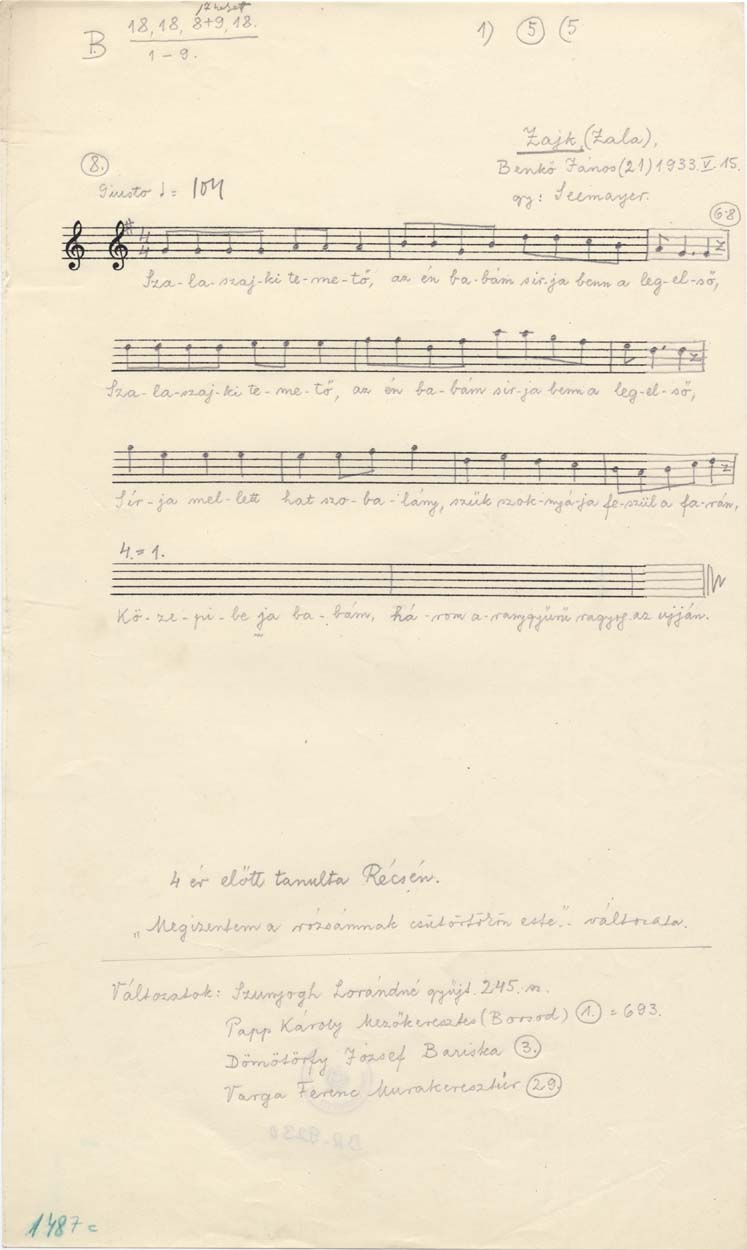 B 18, 18, 8+9, 18.
1 - 9.
1) 5 (5
Zajk (Zala),
8.
Benkő János (21) 1933. V. 15.
Giusto ♩= 104
gy: Seemayer.
6-8
Sza-la-szaj-ki te-me-tő, az én ba-bám sir-ja benn a leg-el-ső,
Sza-la-szaj-ki te-me-tő, az én ba-bám sir-ja benn a leg-el-ső,
Sír-ja mel-lett hat szo-ba-lány, szük szok-nyá-ja fe-szül a fa-rán,
4. = 1.
Kö-ze-pi-be ja ba-bám, há-rom a-ranygyürü ragyog az ujján.
4 év előtt tanulta Récsén.
„Megizentem a rózsámnak csütörtökön este". változata.
Változatok: Szunyogh Lorándné gyüjt. 245. sz.
Papp Károly Mezőkeresztes (Borsod) 1. = 693.
Dömötörfy József Bariska 3.
Varga Ferenc Murakeresztúr 29.
1487=